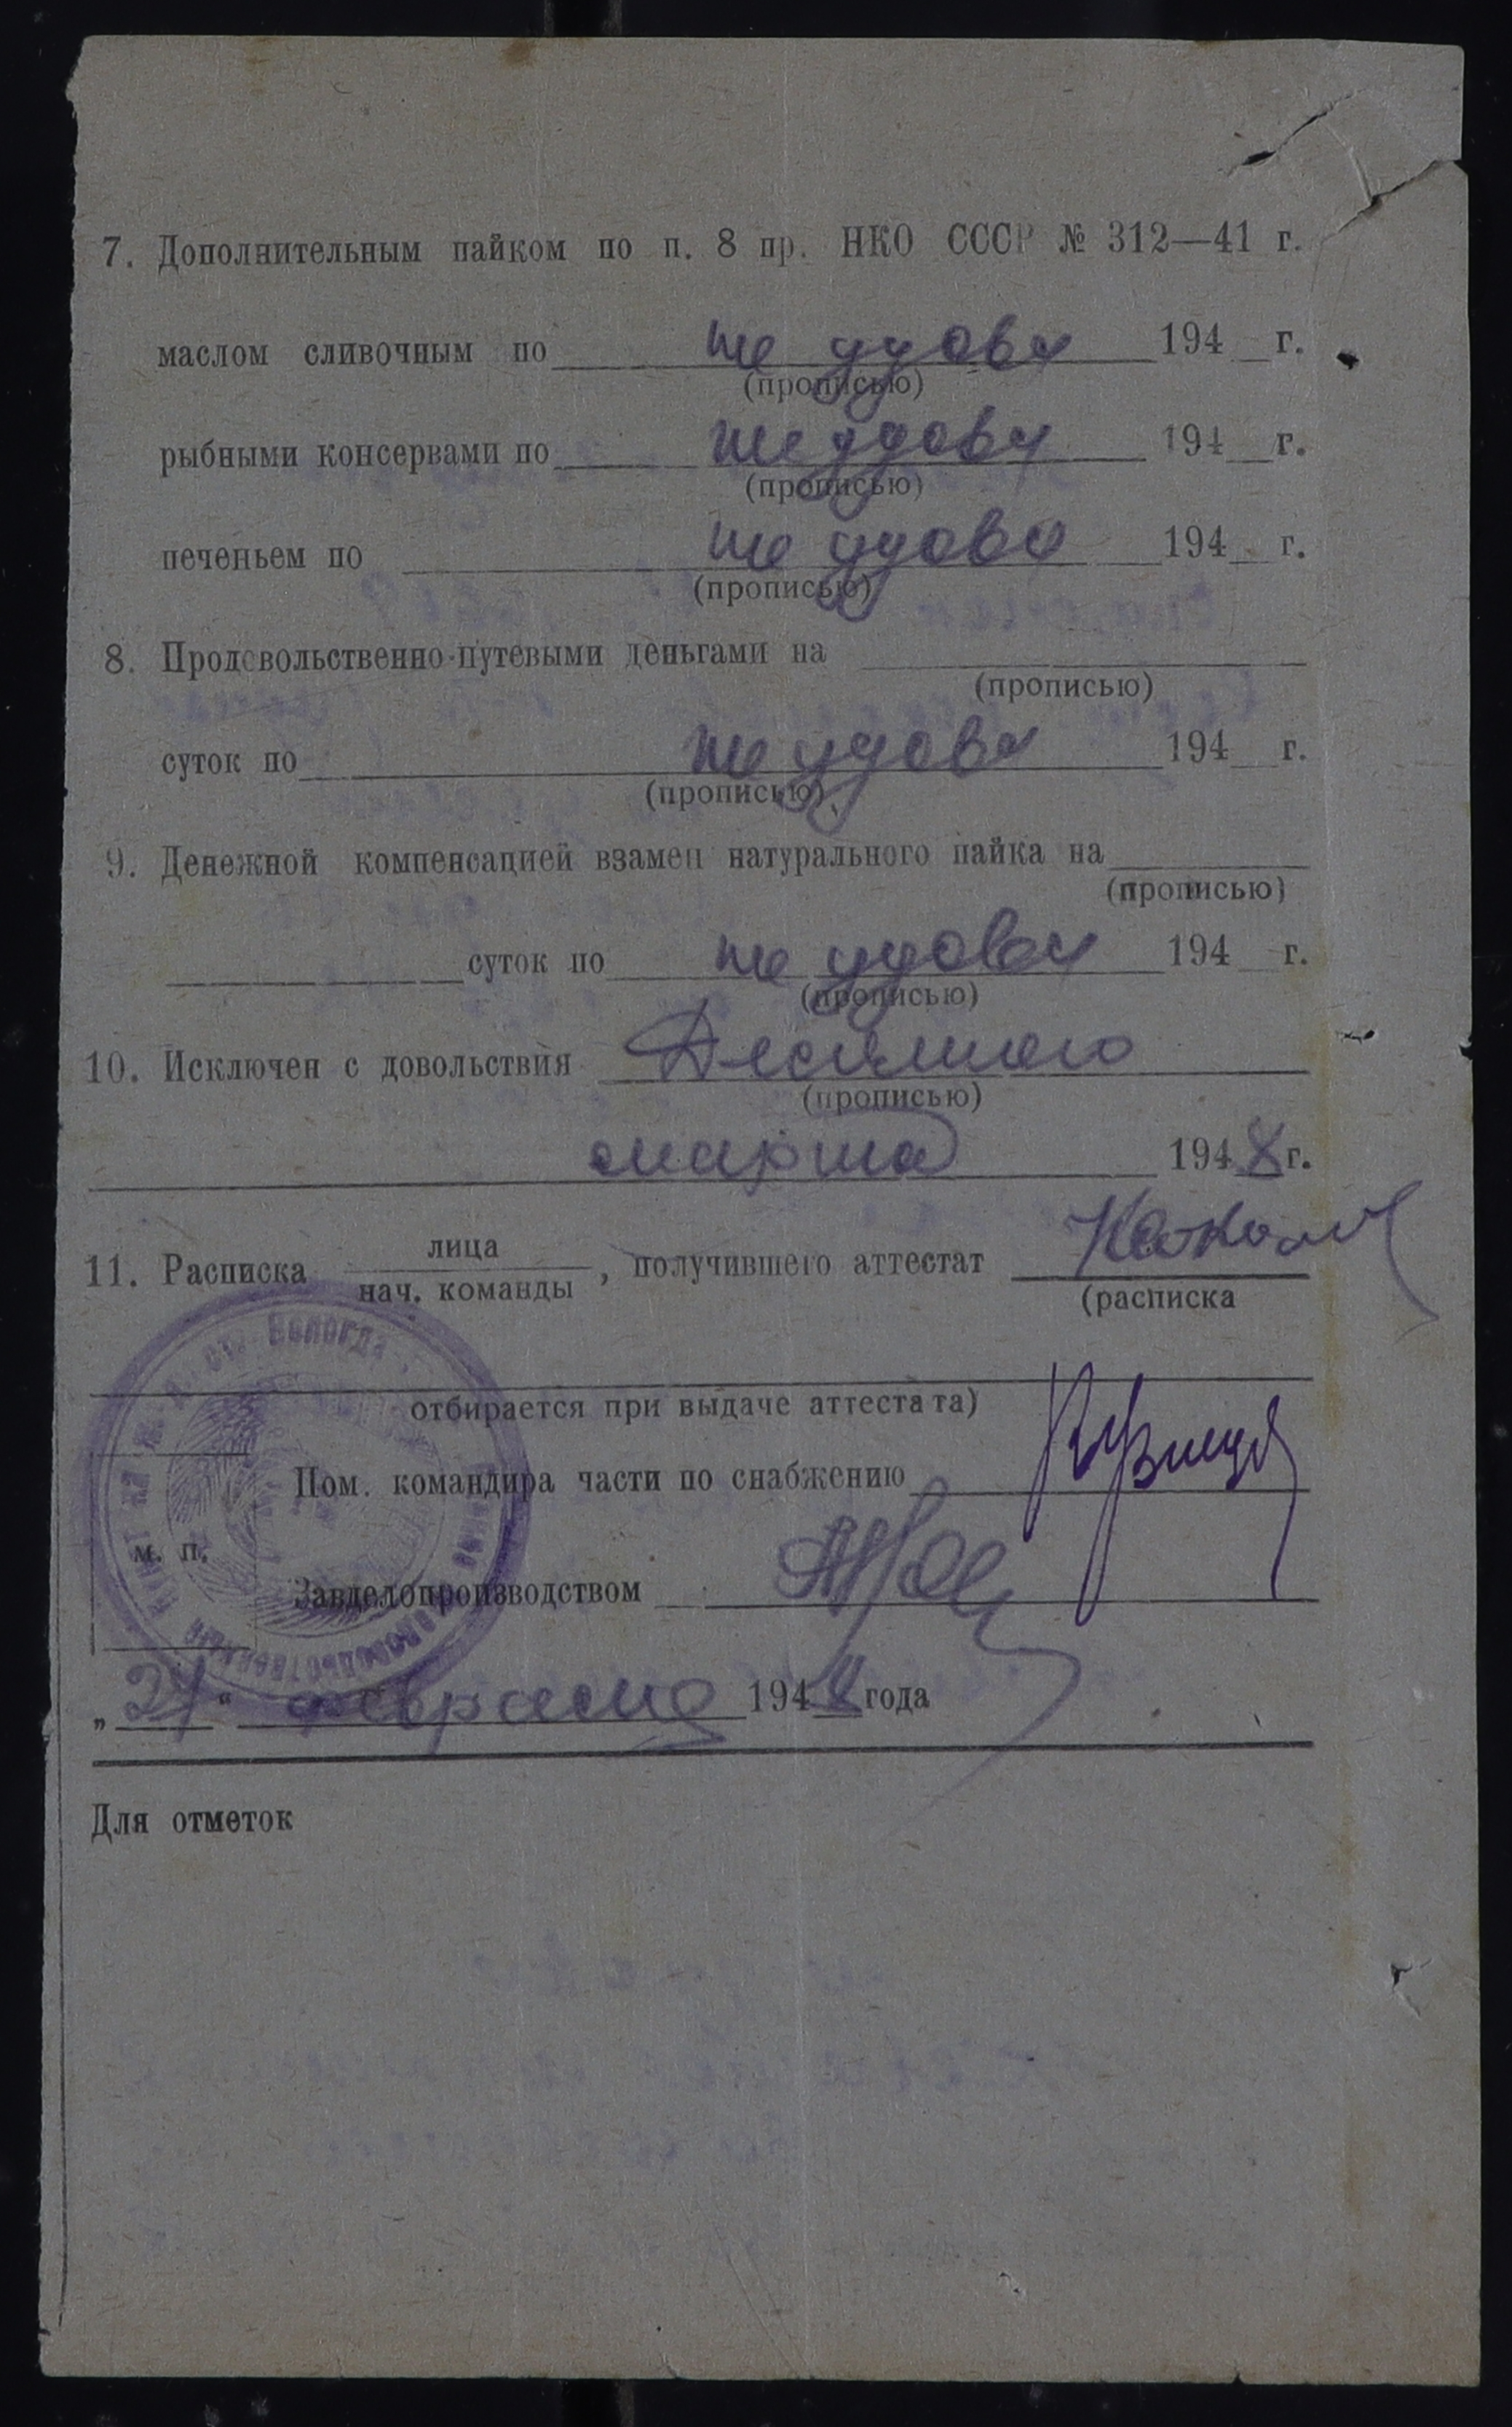 7. Дополнительным пайком по п. 8 пр. НКО СССР № 312—41 г.
маслом сливочным по не удовл 194 г.
(прописью)
рыбными консервами по не удовл 194 г.
(прописью)
печеньем по не удовл 194 г.
(прописью)
8. Продовольственно-путевыми деньгами на
(прописью)
суток по не удовл 194 г.
(прописью)
9. Денежной компенсацией взамен натурального пайка на
(прописью)
суток по не удовл 194 г.
(прописью)
10. Исключен с довольствия Десятого
(прописью)
марта 194 г.
лица
11. Расписка , получившего аттестат
нач. команды
(расписка
ст. Вологда
отбирается при выдаче аттестата)
Пом. командира части по снабжению Кузнецов
м. п.
Завделопроизводством
„ “ февраля 194 года
Для отметок